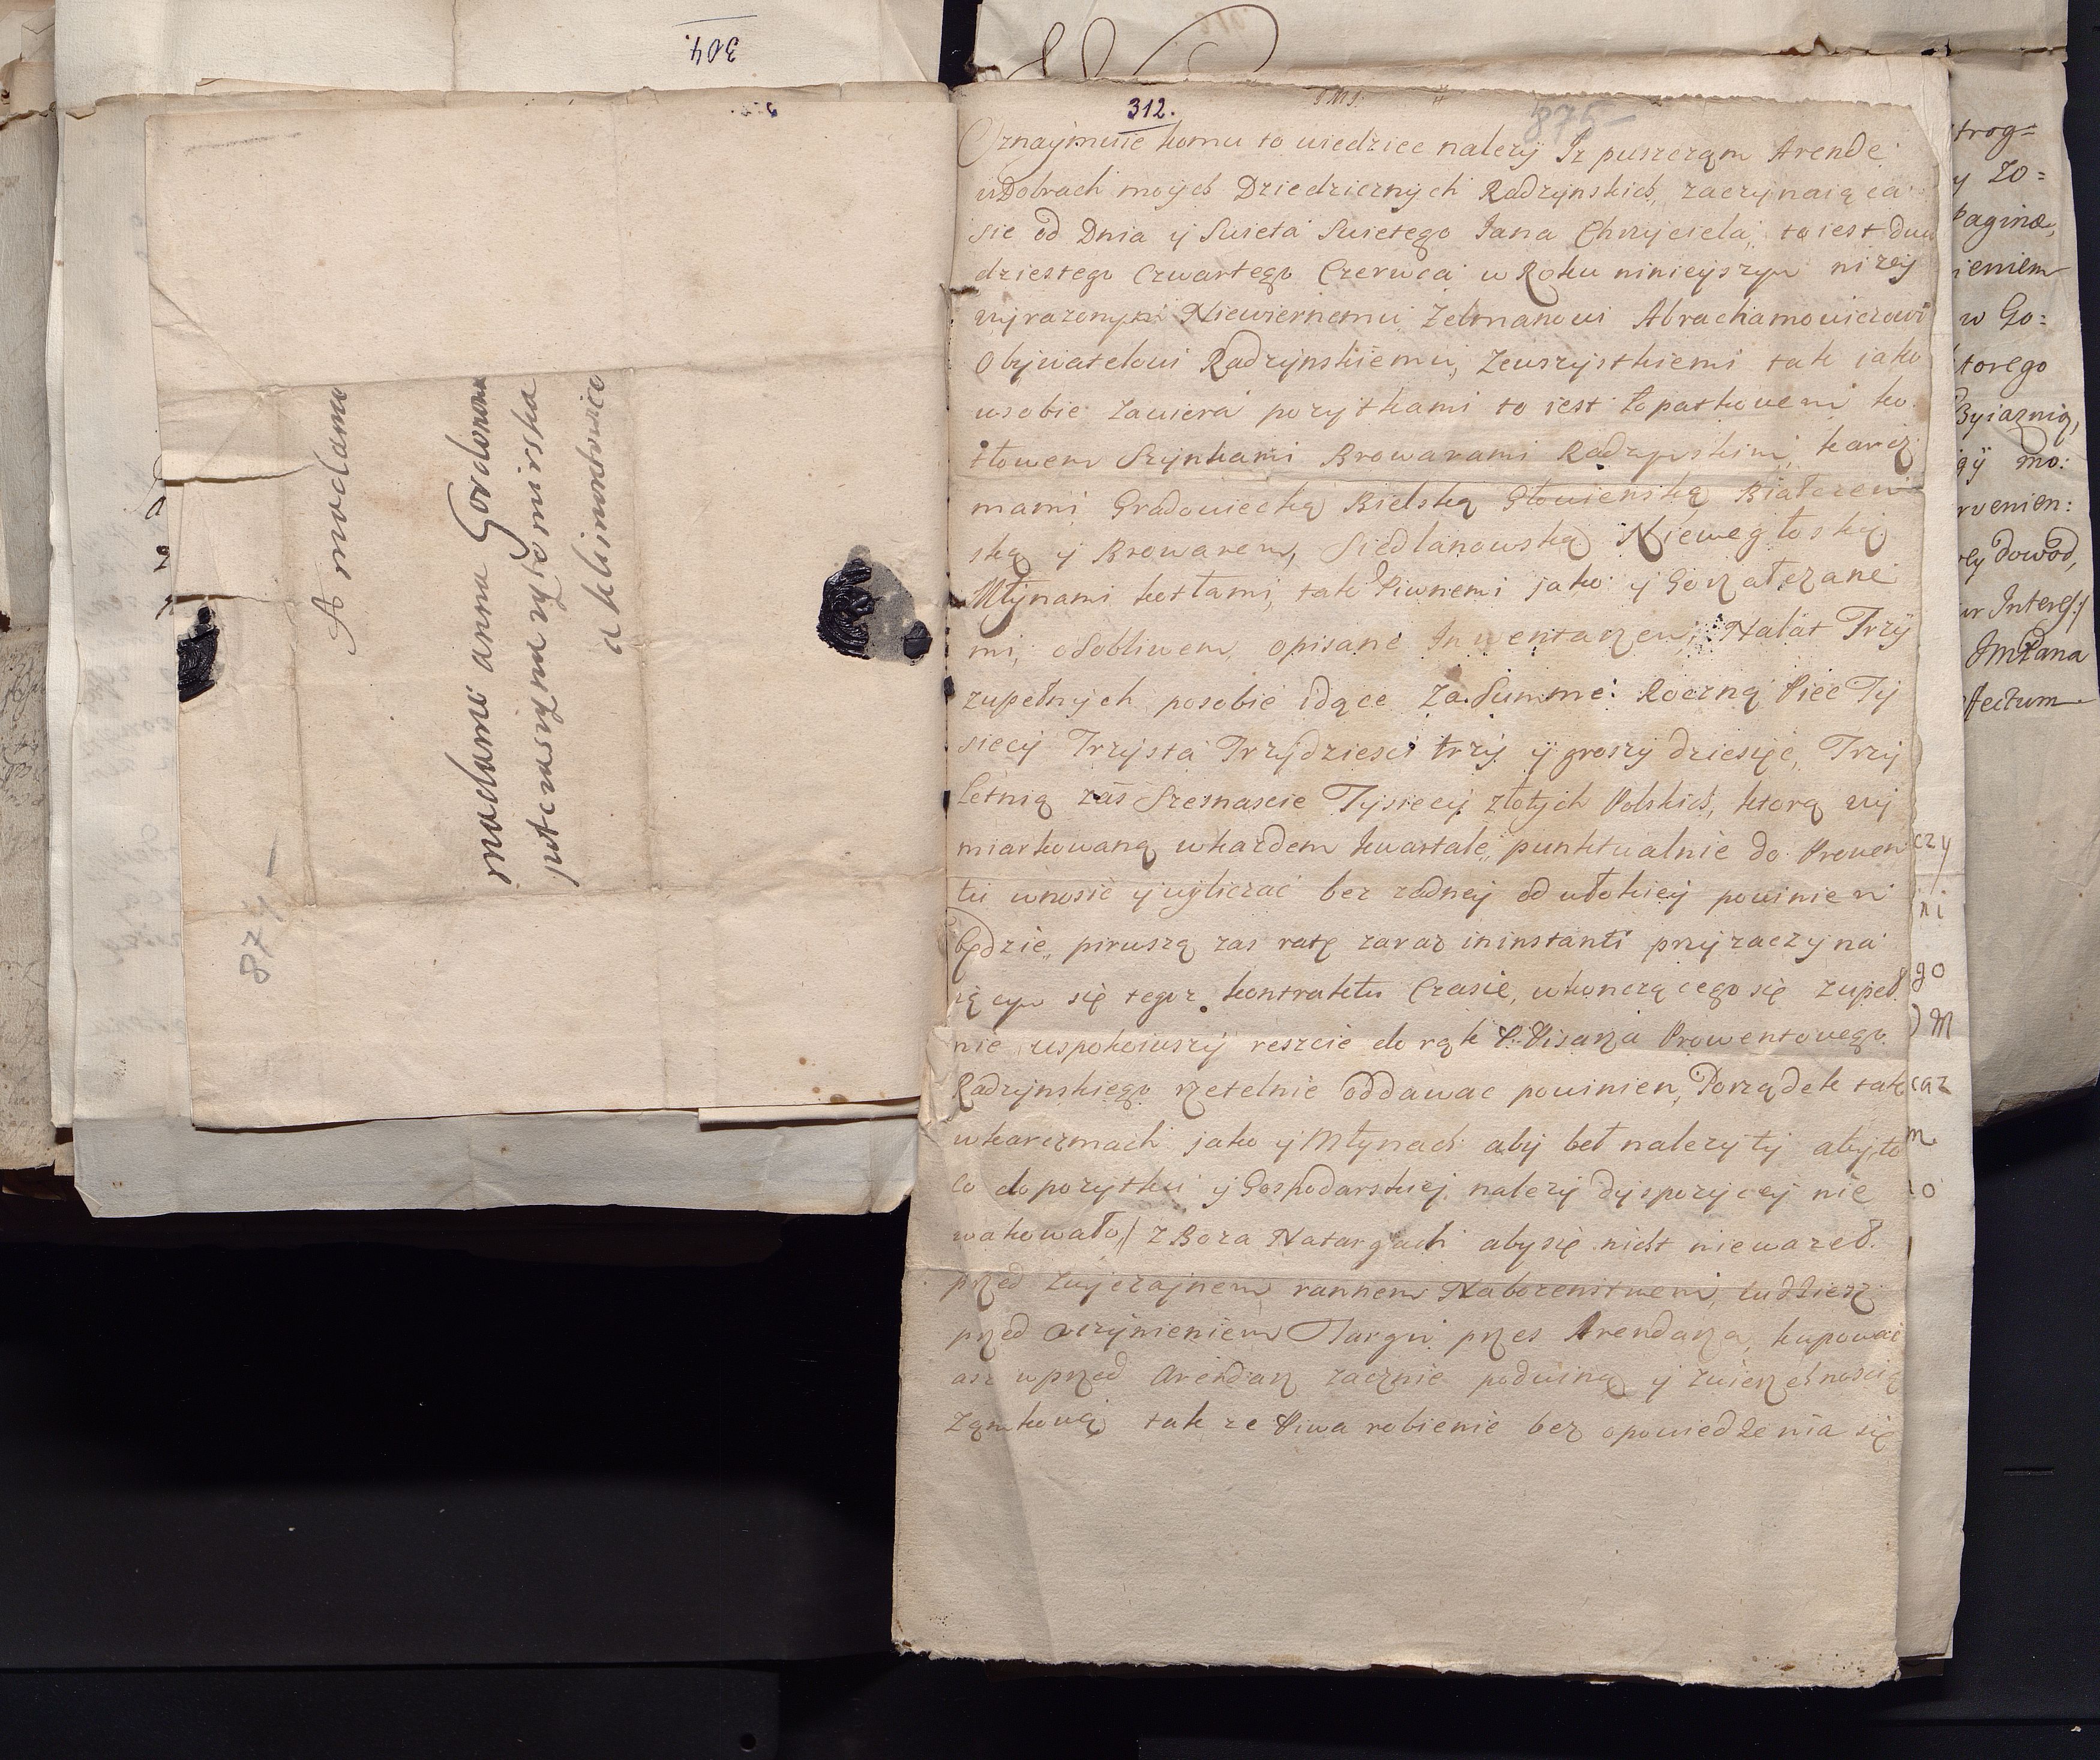 304.
A madame
madame anna Gordonowa
a klimontowice
874
312.
875
Oznaymuie komu to wiedziec nalezy Iz puszczam Arende
w Dobrach moych Dziedzicznych Radzynskich, zaczynaiąca
sie od Dnia y Swieta Swietego Jana Chrzyciela, to iest dwu
dziestego Czwartego Czerwca w Roku ninieyszym nizey
wyrazonym Niewiernemu Zelmanowi Abrachamowiczowi
Obywatelowi Radzynskiemu, Zewszystkiemi tak iako
wsobie zawiera pozytkami to iest Łopatkowem ko
tłowem Szynkami Browarami Radzynskim, karcz
mami Gradowiecką Bielską Głowienską Białczew
ską y Browarem, Siedlanowską Niewegłoską
Młynami kotłami, tak Piwnemi jako y Gorzałczane
mi, osobliwem opisane Inwentarzem, Nalat Trzy
zupełnych posobie idące Za Summe Roczną Piec Ty
siecy Trzysta Trzydziesci trzy y groszy dziesięc, Trzy
letnią zas Szesnascie Tysiecy złotych Polskich, ktorą wy
miarkowaną wkazdem kwartale, punktualnie do Prowen
tu wnosic y wyliczać bez zadney odwłokiey powinien
będzie, pirwszą zas ratę zaraz ininstanti przyzaczyna
iącym się tegoz kontraktu Czasie, wkonczącego się zupeł
nie uspokoiwszy reszcie do rąk P. Pisarza Prowentowego
Radzynskiego rzetelnie oddawac powinien, Porządek tak
wkarczmach jako y Młynach aby beł nalezyty aby to
co dopozytku y Gospodarskiey nalezy dyspozycey nie
wakowało, z Boza Natargach aby się nicht niewazeł
przed zwyczajnem rannem Nabozenstwem, tudziesz
przed uczynieniem Targu przes Arendarza, kupować
asz wprzed Arendarz zacznie podwiną y zwierzchnoscią
Zamkową tak ze Piwa robienie bez opowiedzenia się
trog=
y Zo=
Paginæ,
ieniem
w Go:
ktorego
mo:
rvenien:
dowod,
Interess
JmPana
ffectum
czy
go
m